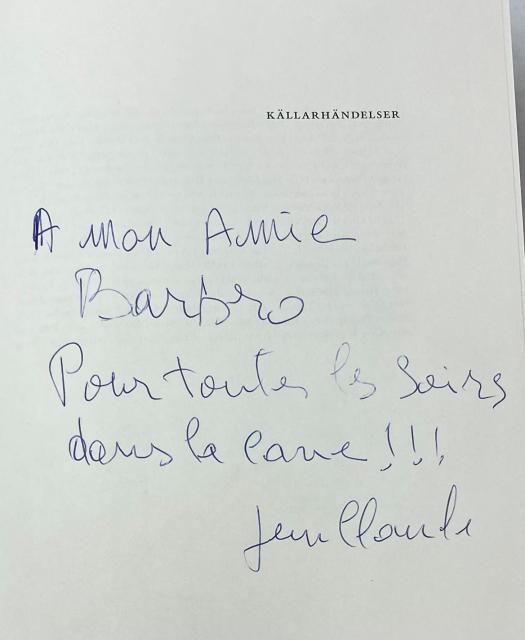 KÄLLARHÄNDELSER
A mon Amie
Barbro
Pour toutes les Soirs
dans la cave !!!
Jean Claude